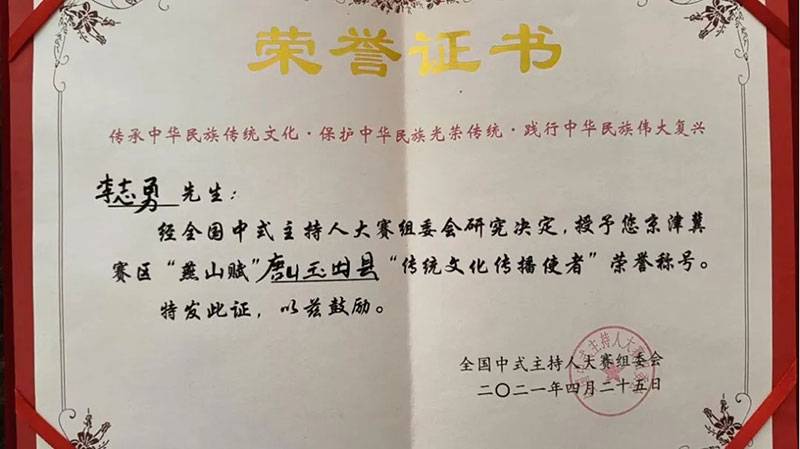 荣誉证书
传承中华民族传统文化·保护中华民族光荣传统·践行中华民族伟大复兴
李志勇 先生：
经全国中式主持人大赛组委会研究决定，授予您京津冀
赛区“燕山赋”唐山玉田县“传统文化传播使者”荣誉称号。
特发此证，以兹鼓励。
全国中式主持人大赛组委会
二〇二一年四月二十五日